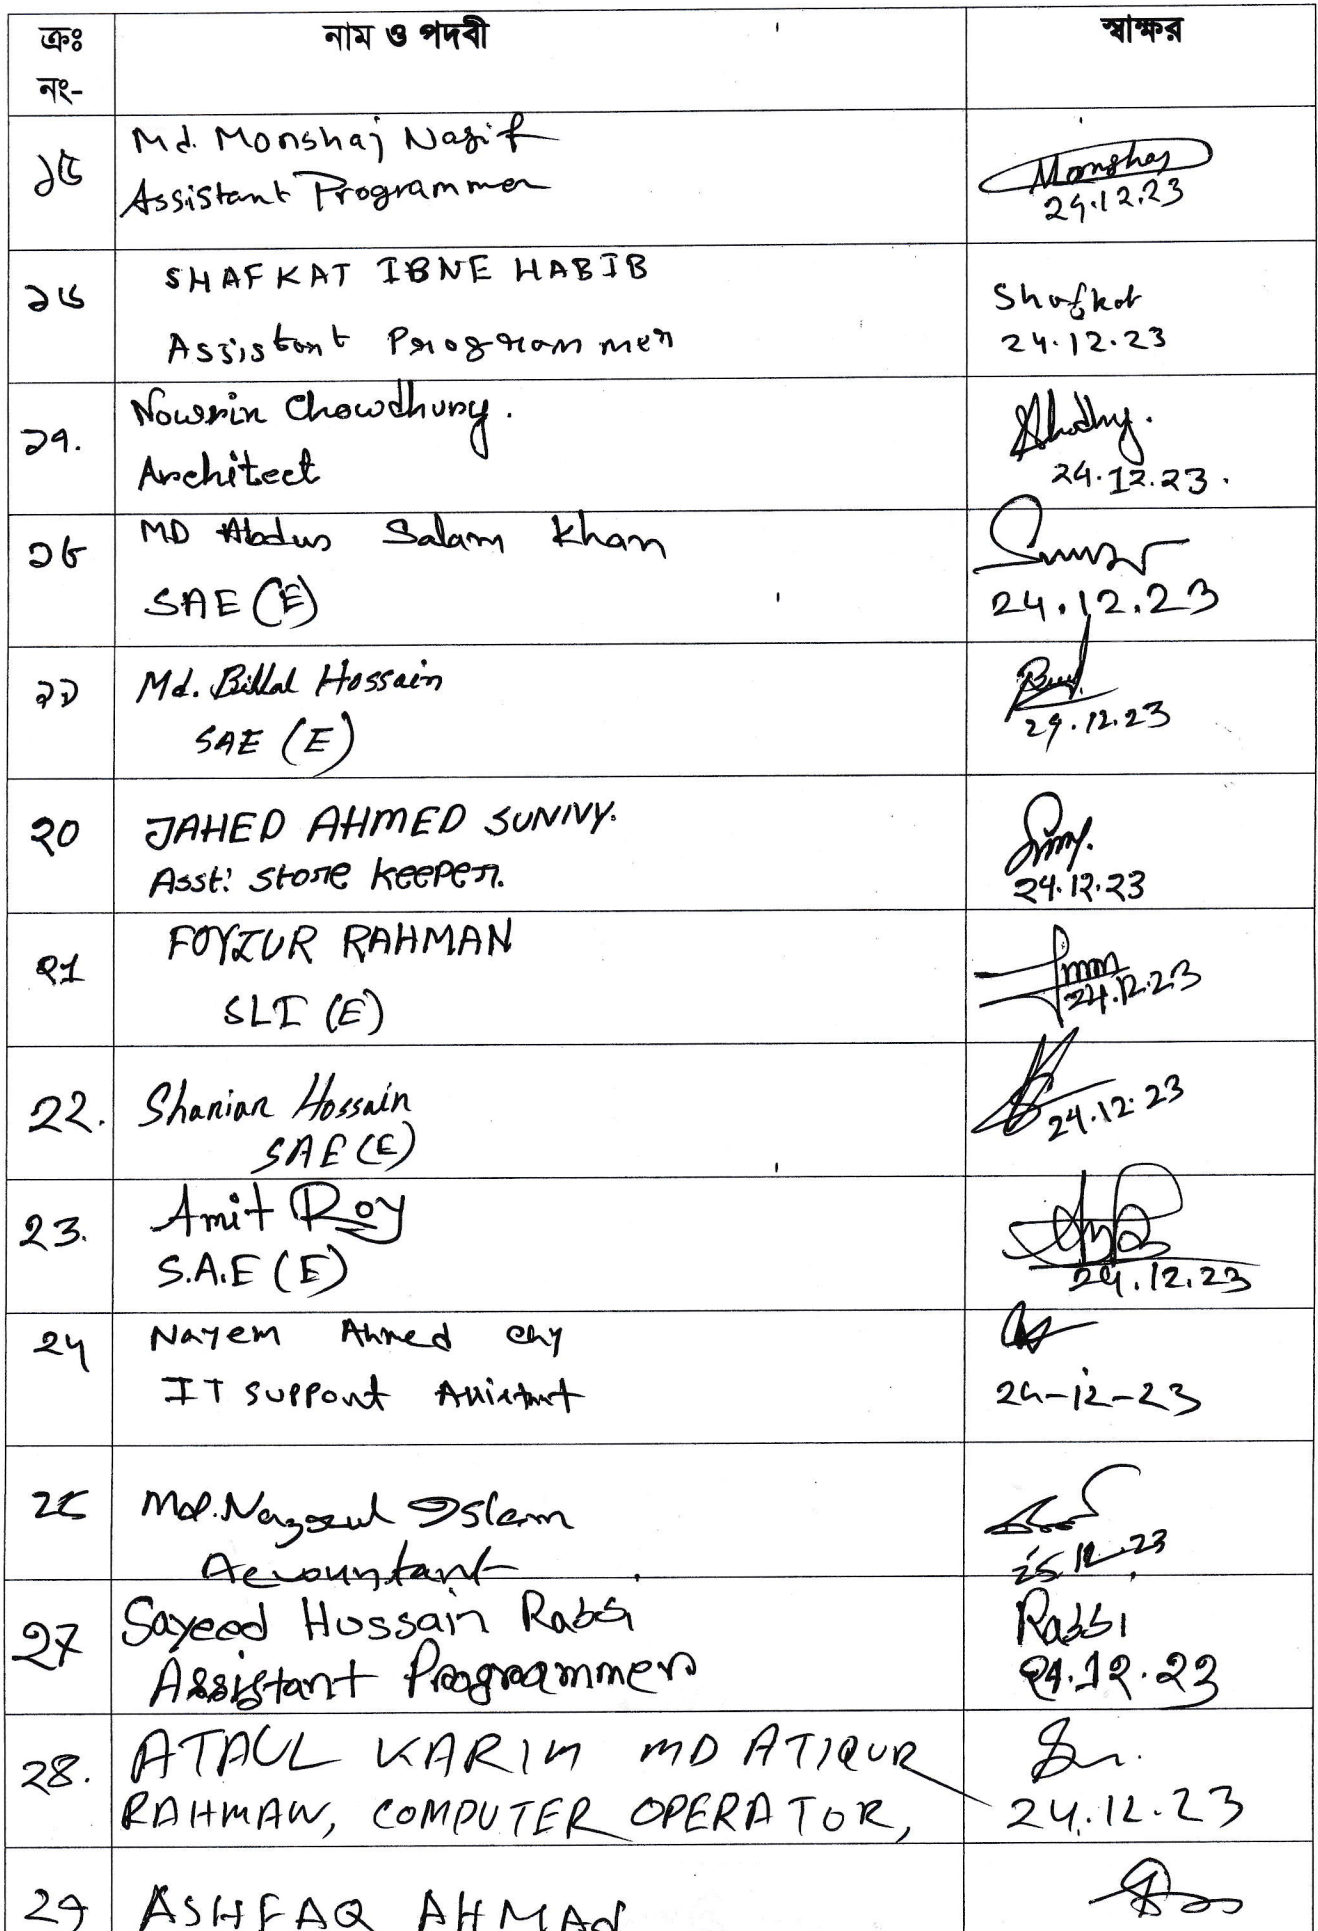 ক্রঃ নং- নাম ও পদবী স্বাক্ষর
১৫ Md. Monshaj Nasif Monshaj
Assistant Programmer 24.12.23
১৬ SHAFKAT IBNE HABIB Shafkat
Assistant Programmer 24.12.23
১৭. Nowrin Chowdhury.
Architect 24.12.23.
১৮ MD Abdus Salam Khan
SAE (E) 24.12.23
১৯ Md. Billal Hossain
SAE (E) 24.12.23
২0 JAHED AHMED SUNNY.
Asst: Store keeper. 24.12.23
২1 FOYZUR RAHMAN
SLI (E) 24.12.23
22. Sharian Hossain
SAE (E) 24.12.23
23. Amit Roy
S.A.E (E) 24.12.23
24 Nayem Ahmed Chy
IT Support Assistant 24-12-23
25 Md. Nazrul Islam
Accountant 25.12.23
27 Sayeed Hussain Rabbi Rabbi
Assistant Programmer 24.12.23
28. ATAUL KARIM MD ATIQUR
RAHMAN, COMPUTER OPERATOR, 24.12.23
29 ASHFAQ AHMAd